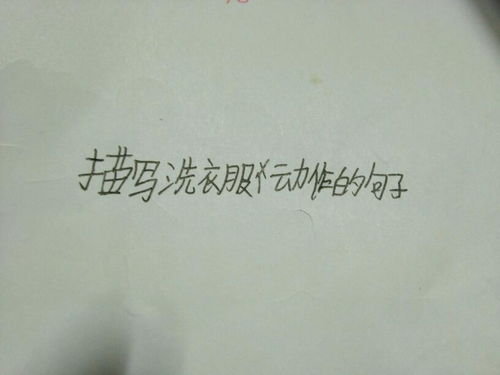 描写洗衣服动作的句子